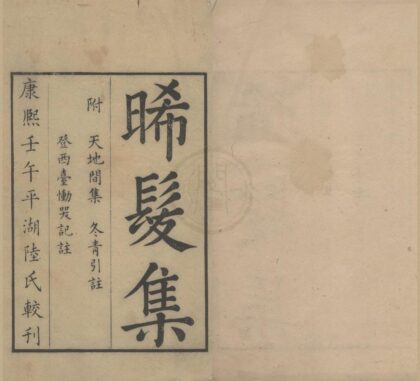 晞髮集
附 天地間集 冬青引註
登西臺慟哭記註
康熙壬午平湖陸氏較刊